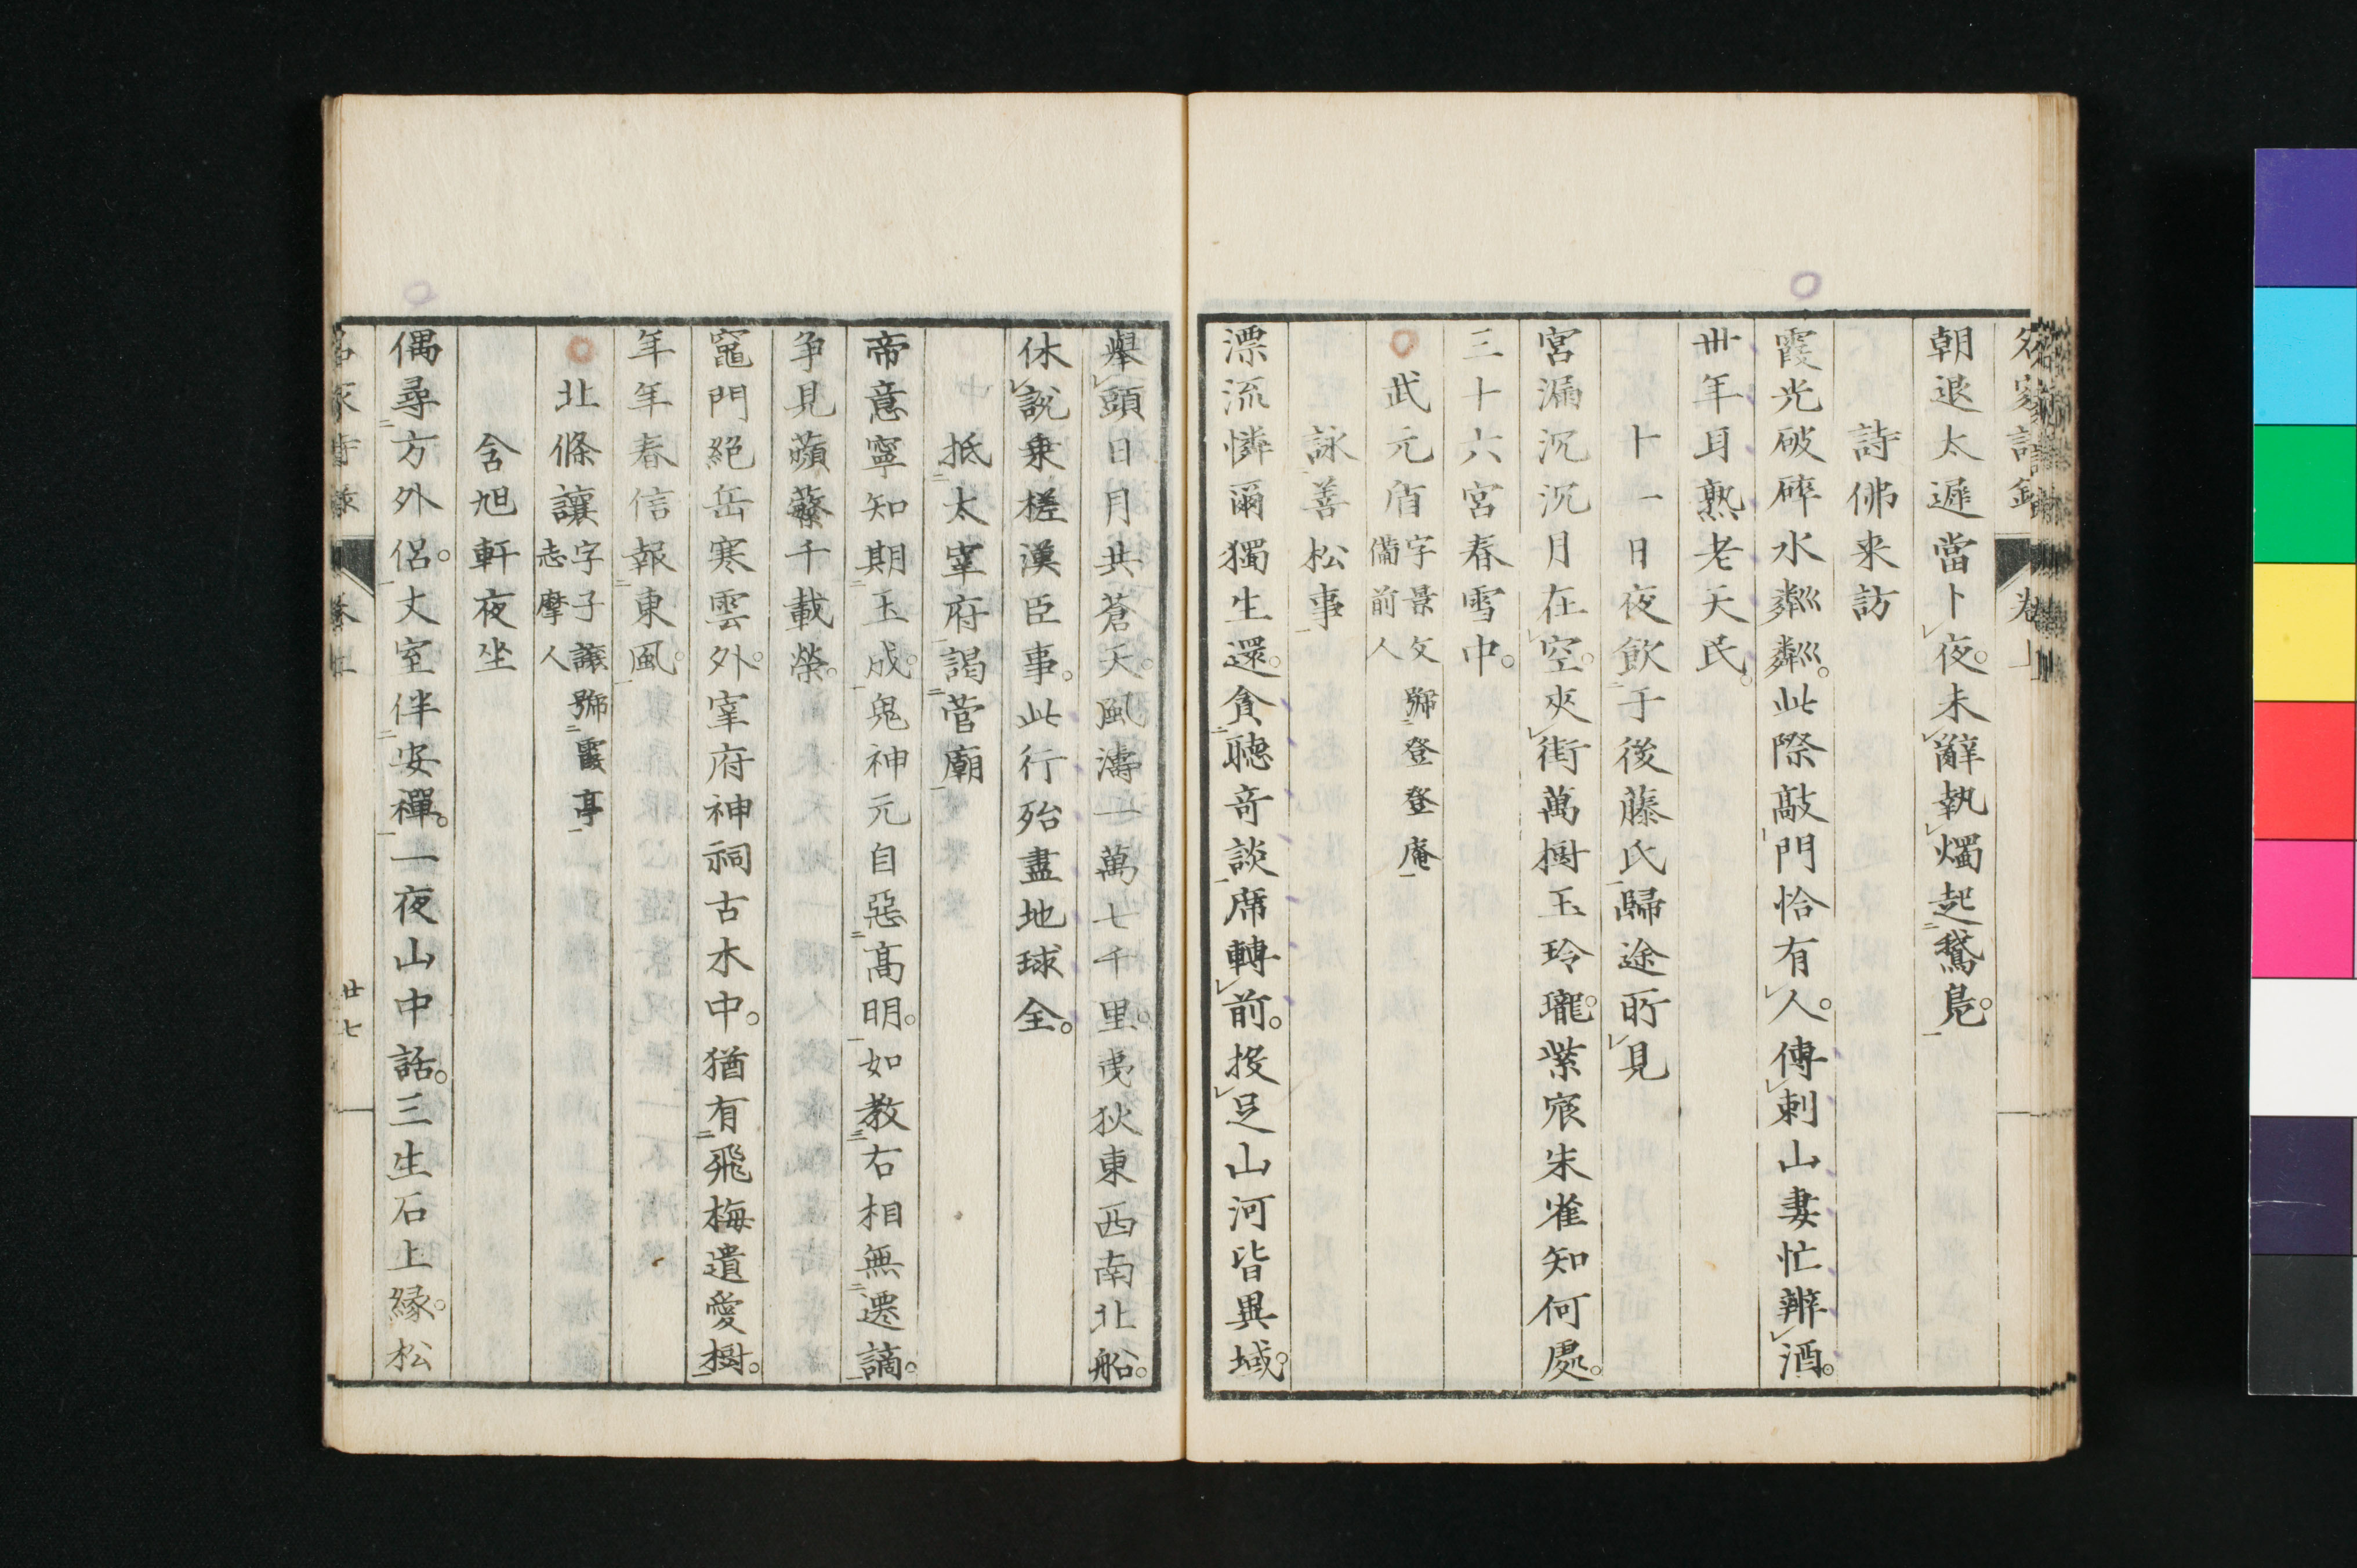 朝退太遲當卜夜。未辭執燭起鵞鳧。
詩佛来訪
霞光破碎水粼粼。此際敲門恰有人。傳刺山妻忙辨酒。
卅年耳熟老天民。
十一日夜飲于後藤氏歸途所見
宮漏沉沉月在空。夾街萬樹玉玲瓏。紫宸朱雀知何處。
三十六宮春雪中。
武元質字景文備前人號登登庵
詠善松事
漂流憐爾獨生還。貪聴奇談席轉前。投足山河皆異域。
擧頭日月共蒼天。風濤一萬七千里。夷狄東西南北船。
休說乗槎漢臣事。此行殆盡地球全。
抵太宰府謁菅廟
帝意寧知期玉成。鬼神元自惡高明。如教右相無遷謫。
争見蘋蘩千載榮。
竈門絕岳寒雲外。宰府神祠古木中。猶有飛梅遺愛樹。
年年春信報東風。
北條讓字子讓志摩人號霞亭
含旭軒夜坐
偶尋方外侶。丈室伴安禪。一夜山中話。三生石上縁。松
廿七